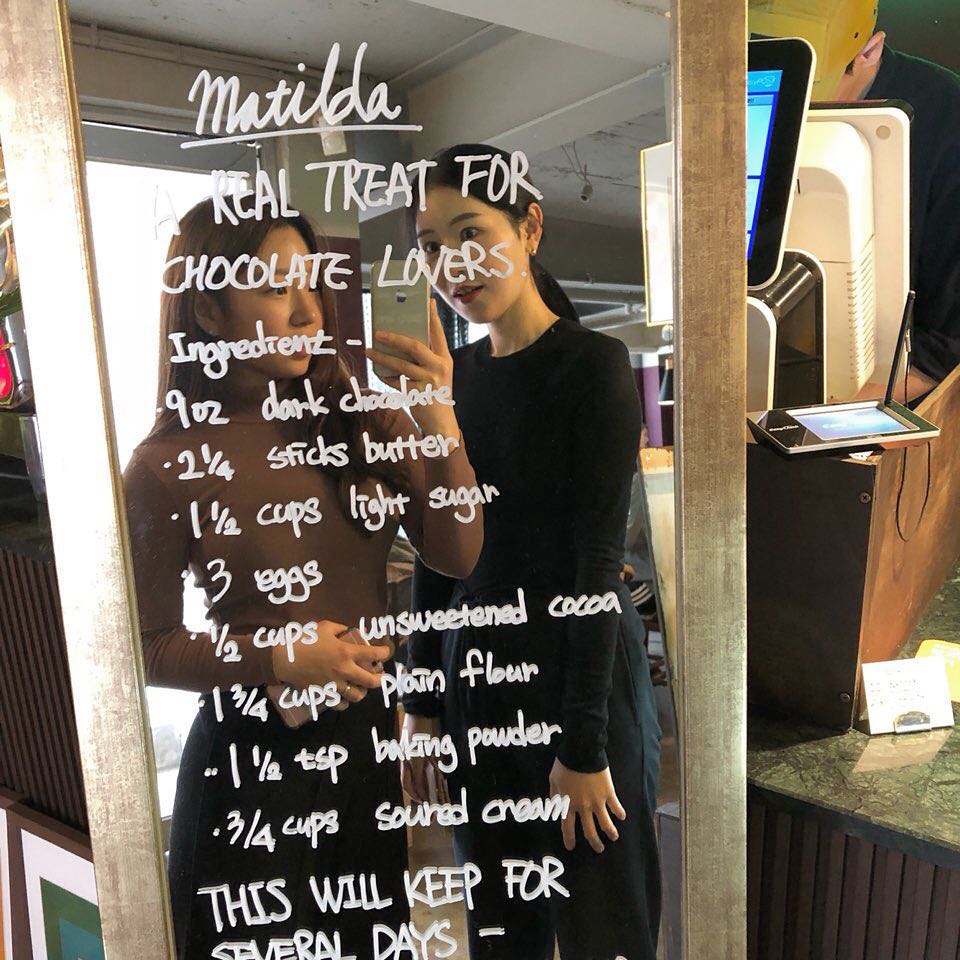 Matilda
A REAL TREAT FOR
CHOCOLATE LOVERS.
Ingredient -
· 9oz dark chocolate
· 2 1/4 sticks butter
· 1 1/2 cups light sugar
· 3 eggs
· 1/2 cups unsweetened cocoa
· 1 3/4 cups plain flour
· 1 1/2 tsp baking powder
· 3/4 cups soured cream
THIS WILL KEEP FOR
SEVERAL DAYS -